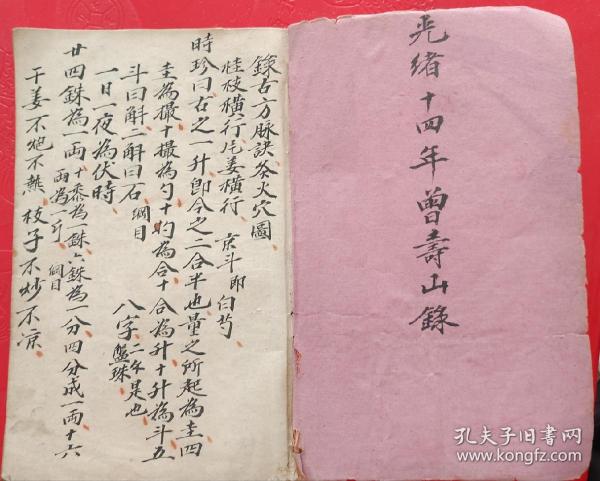 光緒十四年曾壽山錄
錄古方脉訣灸火穴圖
桂枝橫行片姜橫行 京斗即白芍
時珍曰古之一升即今之二合半也量之所起為圭四
圭為撮十撮為勺十灼為合十合為升十升為斗五
斗曰斛二斛曰石 綱目
一日一夜為伏時 八字二分是也 盤珠
廿四銖為一兩十黍為銖六銖為一分四分成一兩十六
兩為一斤 綱目
干姜不炮不熱 枝子不炒不凉
孔夫子旧书网
www.kongfz.com